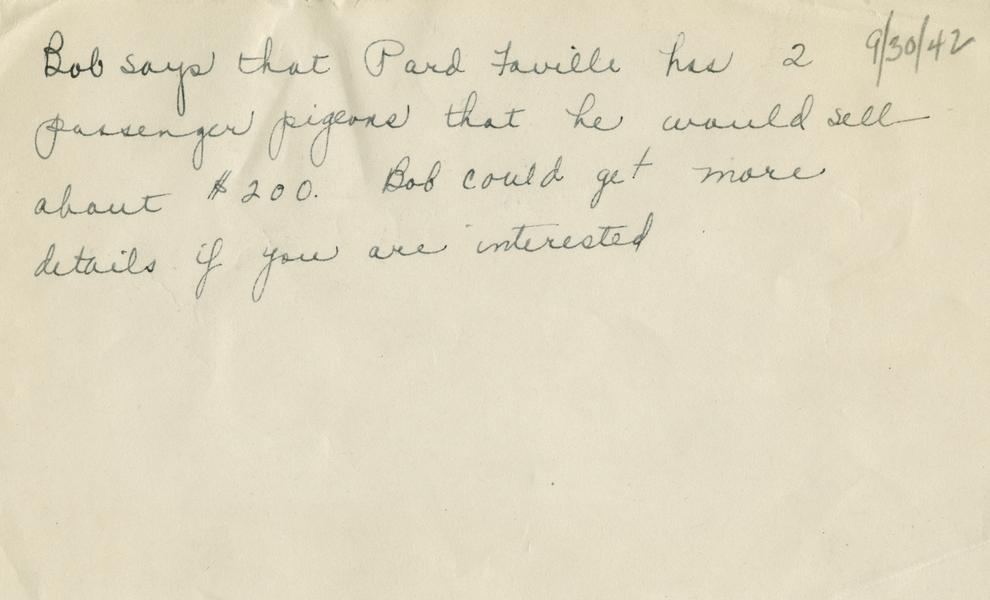 9/30/42
Bob says that Pard Faville has 2
passenger pigeons that he would sell
about $200. Bob could get more
details if you are interested